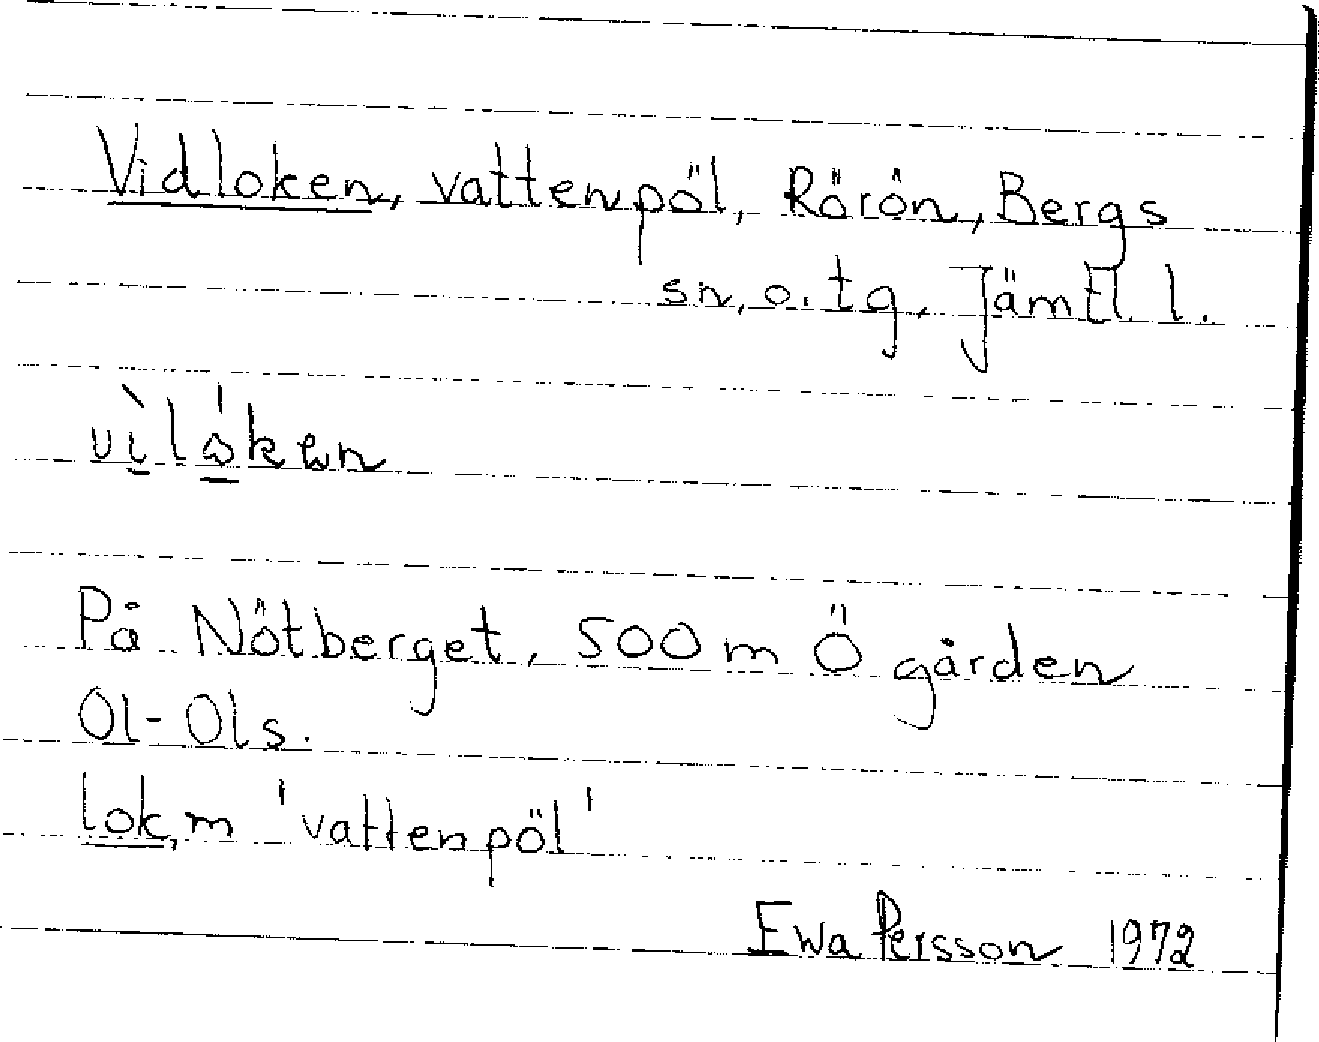 Vidloken, vattenpöl, Rörön, Bergs
sn. o. tg. Jämtl. l.
På Nötberget, 500 m Ö gården
Ol-Ols.
lok, m 'vattenpöl'
Ewa Persson 1972